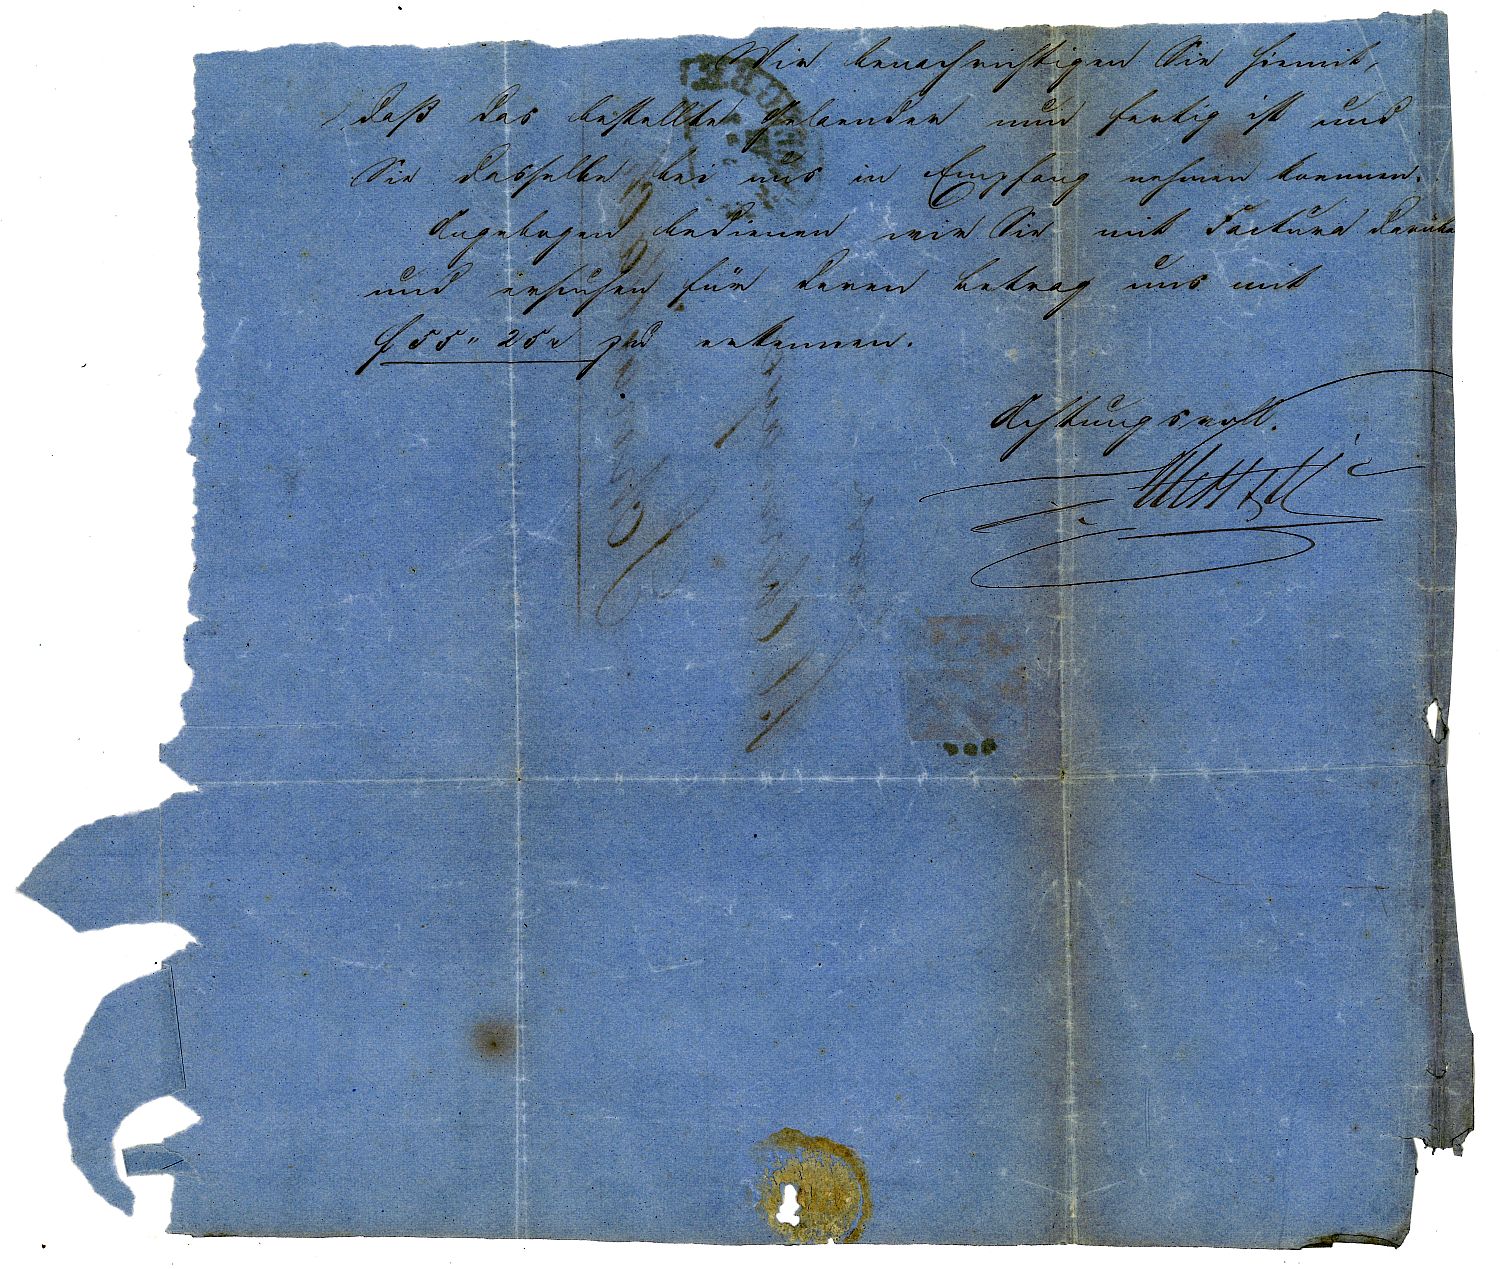 Wir benachrichtigen Sie hiemit,
daß das bestellte Gelaender nun fertig ist und
Sie dasselbe bei uns in Empfang nehmen koennen.
Angebogen bedienen wir Sie mit Factura darüber
und ersuchen für deren Betrag uns mit
f 55 " 25 x zu erkennen.
Achtungsvoll.